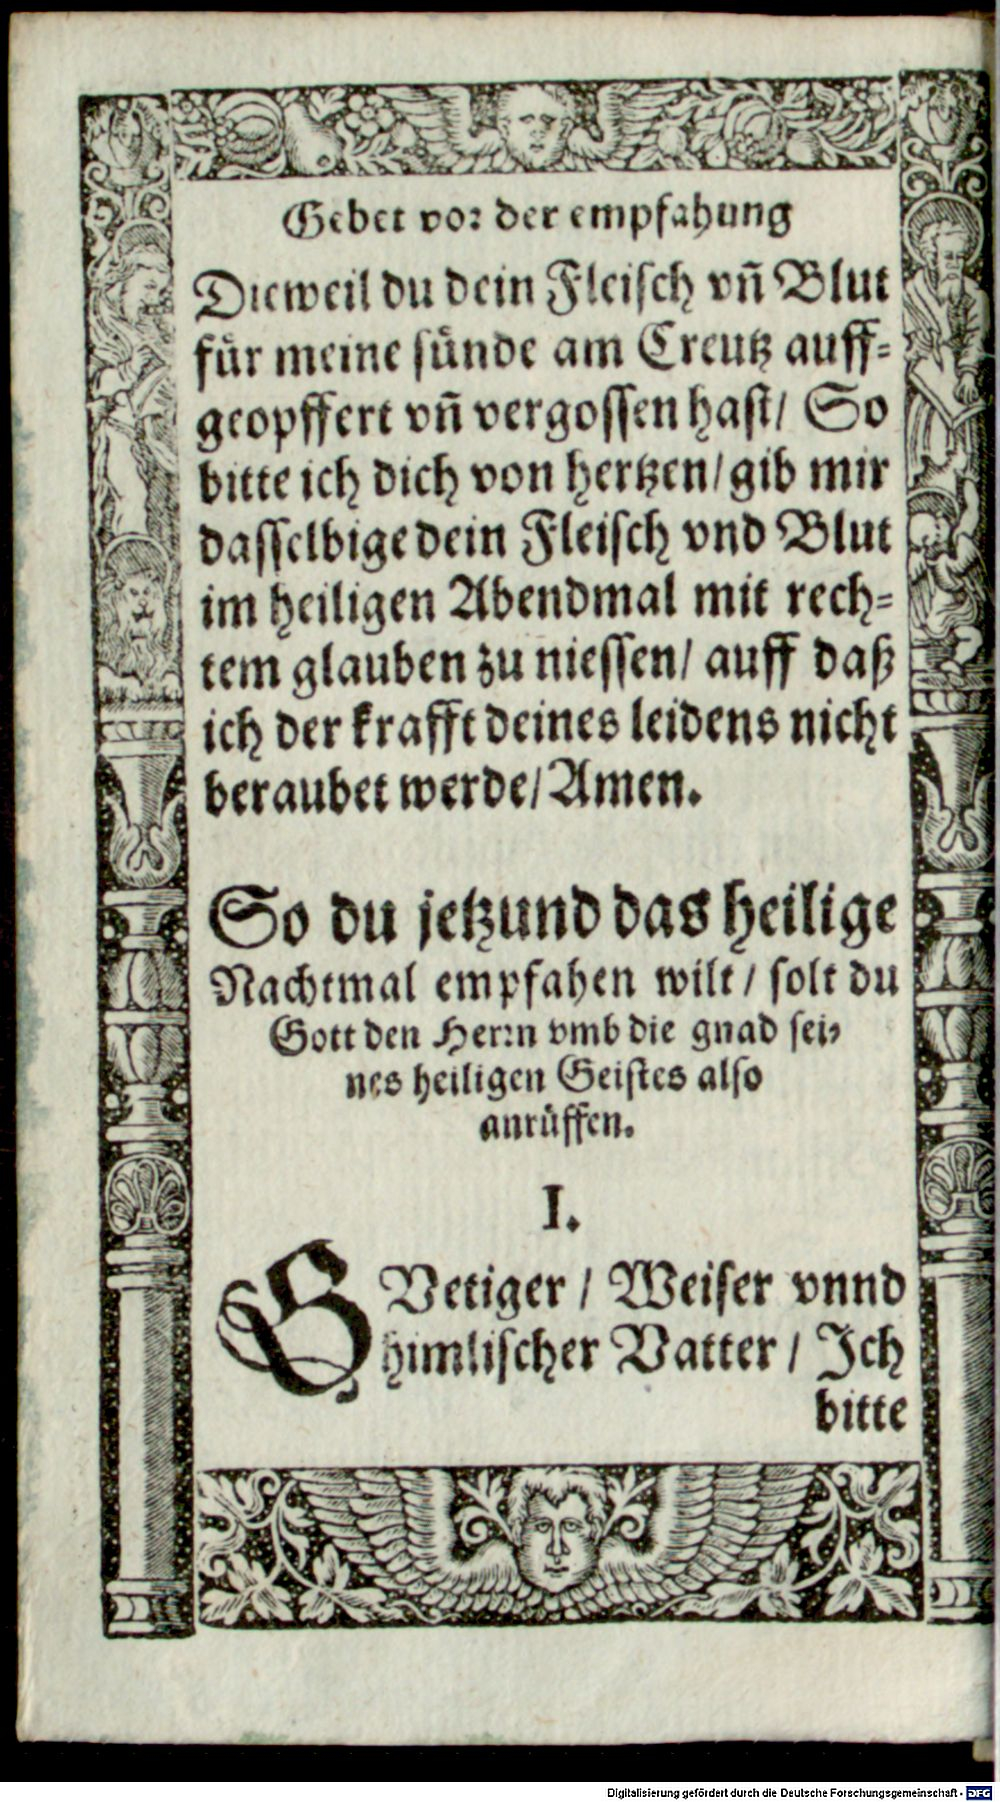 Gebet vor der empfahung
Dieweil du dein Fleisch vñ Blut
für meine sünde am Creutz auff-
geopffert vñ vergossen hast/ So
bitte ich dich von hertzen/ gib mir
dasselbige dein Fleisch vnd Blut
im heiligen Abendmal mit rech-
tem glauben zu niessen/ auff daß
ich der krafft deines leidens nicht
beraubet werde/ Amen.
So du jetzund das heilige
Nachtmal empfahen wilt/ solt du
Gott den Herrn vmb die gnad sei-
nes heiligen Geistes also
anrüffen.
I.
GVetiger/ Weiser vnnd
himlischer Vatter/ Ich
bitte
Digitalisierung gefördert durch die Deutsche Forschungsgemeinschaft - DFG